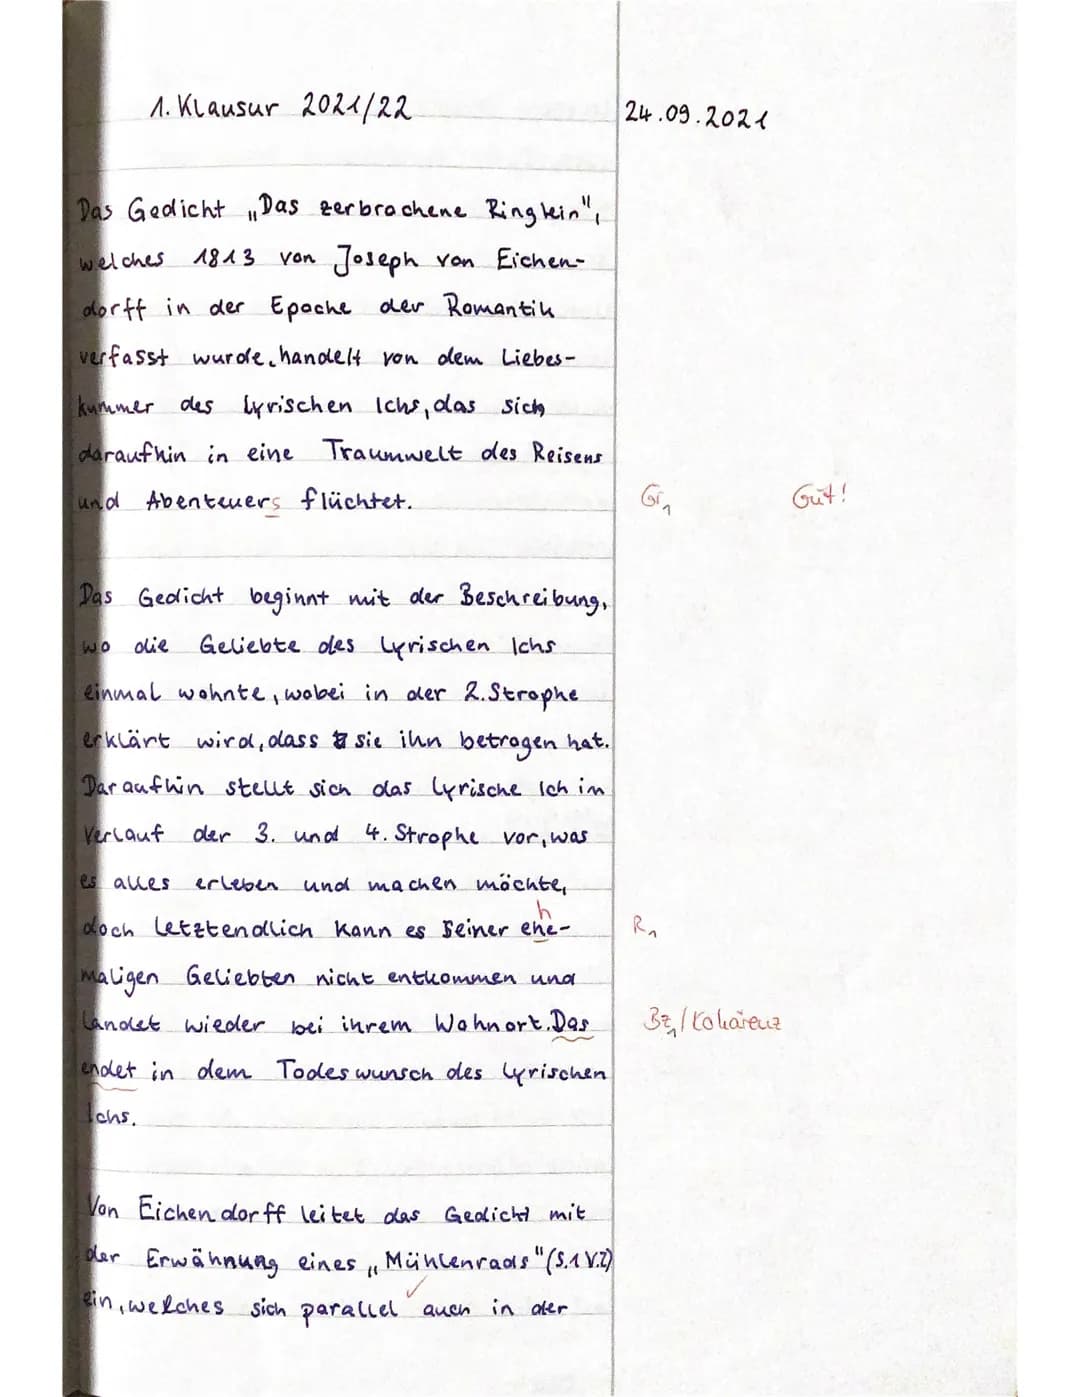 1. Klausur 2021/22
24.09.2021
Das Gedicht „Das zerbrochene Ringlein",
welches 1813 von Joseph von Eichen-
dorff in der Epoche der Romantik
verfasst wurde, handelt von dem Liebes-
kummer des lyrischen Ichs, das sich
daraufhin in eine Traumwelt des Reisens
und Abenteuers flüchtet.
Gr1 Gut!
Das Gedicht beginnt mit der Beschreibung,
wo die Geliebte des lyrischen Ichs
einmal wohnte, wobei in der 2. Strophe
erklärt wird, dass sie ihn betrogen hat.
Daraufhin stellt sich das lyrische Ich im
Verlauf der 3. und 4. Strophe vor, was
es alles erleben und machen möchte,
h
doch letztendlich kann es seiner ehe-
R1
maligen Geliebten nicht entkommen und
landet wieder bei ihrem Wohnort. Das
Bz1/Kohärenz
endet in dem Todeswunsch des lyrischen
Ichs.
Von Eichendorff leitet das Gedicht mit
der Erwähnung eines „Mühlenrads" (S.1 V.2)
ein, welches sich parallel auch in der